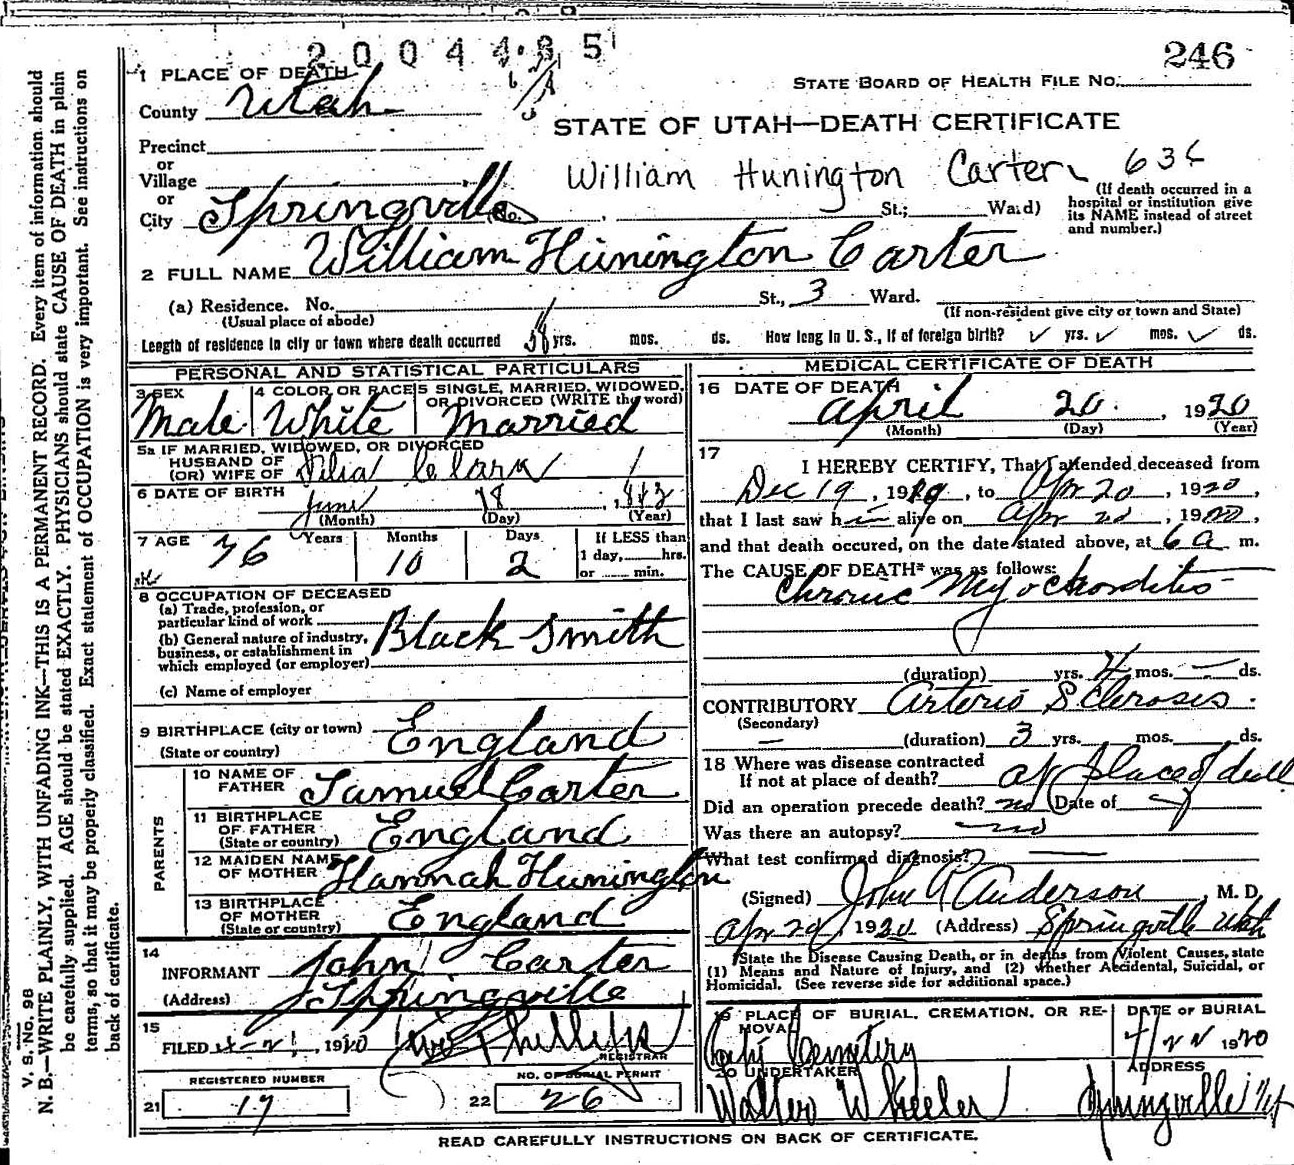 2004485
246
1 PLACE OF DEATH
STATE BOARD OF HEALTH FILE No.
County Utah
STATE OF UTAH—DEATH CERTIFICATE
Precinct
or
Village
William Hunington Carter
(If death occurred in a hospital or institution give its NAME instead of street and number.)
or
City Springville No. St.; Ward)
2 FULL NAME William Hunington Carter
(a) Residence. No. St., 3 Ward.
(Usual place of abode)
(If non-resident give city or town and State)
Length of residence in city or town where death occurred yrs. mos. ds. How long in U. S., if of foreign birth? ✓ yrs. ✓ mos. ✓ ds.
PERSONAL AND STATISTICAL PARTICULARS
3 SEX Male
4 COLOR OR RACE White
5 SINGLE, MARRIED, WIDOWED, OR DIVORCED (WRITE the word) Married
5a IF MARRIED, WIDOWED, OR DIVORCED
HUSBAND OF
(OR) WIFE OF Clark
6 DATE OF BIRTH June 18
(Month) (Day) (Year)
7 AGE 76 Years 10 Months 2 Days
If LESS than 1 day, hrs. or min.
8 OCCUPATION OF DECEASED
(a) Trade, profession, or particular kind of work Black Smith
(b) General nature of industry, business, or establishment in which employed (or employer)
(c) Name of employer
9 BIRTHPLACE (city or town)
(State or country) England
PARENTS
10 NAME OF FATHER Samuel Carter
11 BIRTHPLACE OF FATHER (State or country) England
12 MAIDEN NAME OF MOTHER Hannah Hunington
13 BIRTHPLACE OF MOTHER (State or country) England
14
INFORMANT John Carter
(Address) Springville
15
FILED 4-21, 1920 Phillips
REGISTRAR
REGISTERED NUMBER
21 17
NO. OF BURIAL PERMIT
22 26
MEDICAL CERTIFICATE OF DEATH
16 DATE OF DEATH April 20, 1920
(Month) (Day) (Year)
17
I HEREBY CERTIFY, That I attended deceased from
Dec 19, 1919, to Apr 20, 1920,
that I last saw him alive on Apr 20, 1920,
and that death occured, on the date stated above, at 6 a m.
The CAUSE OF DEATH* was as follows:
Chronic Myocarditis
(duration) yrs. 4 mos. — ds.
CONTRIBUTORY Arterio Sclerosis
(Secondary)
(duration) 3 yrs. mos. ds.
18 Where was disease contracted
If not at place of death? at place of death
Did an operation precede death? no Date of
Was there an autopsy? no
What test confirmed diagnosis?
(Signed) John A Anderson, M. D.
Apr 20, 1920 (Address) Springville Utah
*State the Disease Causing Death, or in deaths from Violent Causes, state
(1) Means and Nature of Injury, and (2) whether Accidental, Suicidal, or
Homicidal. (See reverse side for additional space.)
19 PLACE OF BURIAL, CREMATION, OR REMOVAL
Cemetery
DATE OF BURIAL
4/22 1920
20 UNDERTAKER
Walter Wheeler
ADDRESS
Springville Ut
READ CAREFULLY INSTRUCTIONS ON BACK OF CERTIFICATE.
V. S. No. 98
N. B.—WRITE PLAINLY, WITH UNFADING INK—THIS IS A PERMANENT RECORD. Every item of information should
be carefully supplied. AGE should be stated EXACTLY. PHYSICIANS should state CAUSE OF DEATH in plain
terms, so that it may be properly classified. Exact statement of OCCUPATION is very important. See instructions on
back of certificate.